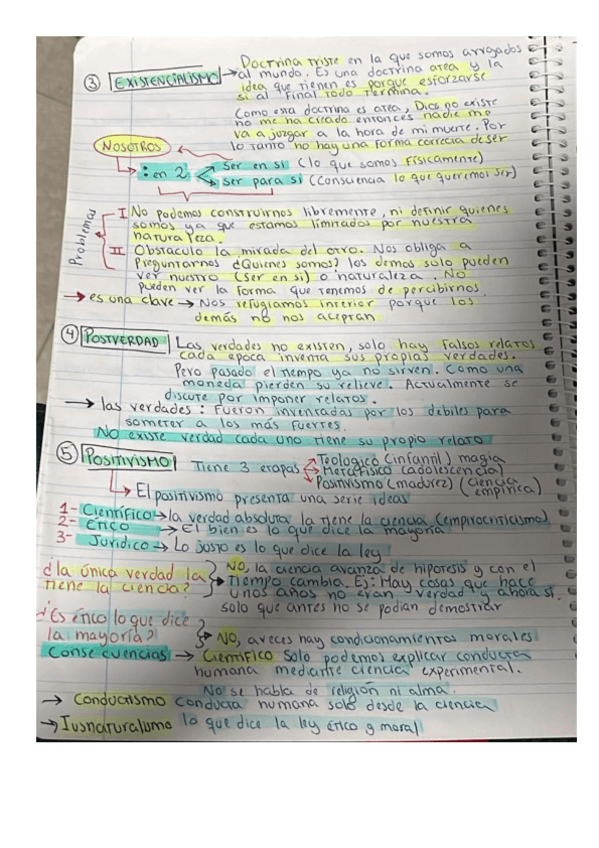 Doctrina triste en la que somos arrojados
③ EXISTENCIALISMO → al mundo. Es una doctrina atea y la
idea que tienen es porque esforzarse
si al final todo termina.
Como esta doctrina es atea, Dios no existe
no me ha creado entonces nadie me
va a juzgar a la hora de mi muerte. Por
lo tanto no hay una forma correcta de ser
NOSOTROS
: en 2
Ser en si (lo que somos físicamente)
Ser para si (Consciencia lo que queremos ser)
Problemas
I No podemos construirnos libremente, ni definir quienes
somos ya que estamos limitados por nuestra
naturaleza.
II Obstaculo la mirada del otro. Nos obliga a
Preguntarnos ¿Quienes somos? los demas solo pueden
ver nuestro (ser en si) o naturaleza. No
pueden ver la forma que tenemos de percibirnos
→ es una clave → Nos refugiamos interior porque los
demás no nos aceptan
④ POSTVERDAD Las verdades no existen, solo hay falsos relatos
cada epoca inventa sus propias verdades.
Pero pasado el tiempo ya no sirven. Como una
moneda pierden su relieve. Actualmente se
discute por imponer relatos.
→ las verdades: Fueron inventadas por los debiles para
someter a los más fuertes.
No existe verdad cada uno tiene su propio relato
⑤ POSITIVISMO Tiene 3 etapas
Teologico (infantil) magia
Metafísico (adolescencia)
Positivismo (madurez) (ciencia
empírica)
→ El positivismo presenta una serie ideas
1- Científico → la verdad absoluta la tiene la ciencia (empirocriticismo)
2- Etico → El bien es lo que dice la mayoría
3- Jurídico → Lo justo es lo que dice la ley
¿la única verdad la
tiene la ciencia?
No, la ciencia avanza de hipotesis y con el
tiempo cambia. Ej: Hay cosas que hace
unos años no eran verdad y ahora si.
solo que antes no se podian demostrar
¿Es ético lo que dice
la mayoría?
No, a veces hay condicionamientos morales
Consecuencias → Científico Solo podemos explicar conducta
humana mediante ciencia experimental.
No se habla de religión ni alma.
→ Conductismo conducta humana solo desde la ciencia
→ Iusnaturalismo lo que dice la ley ético y moral